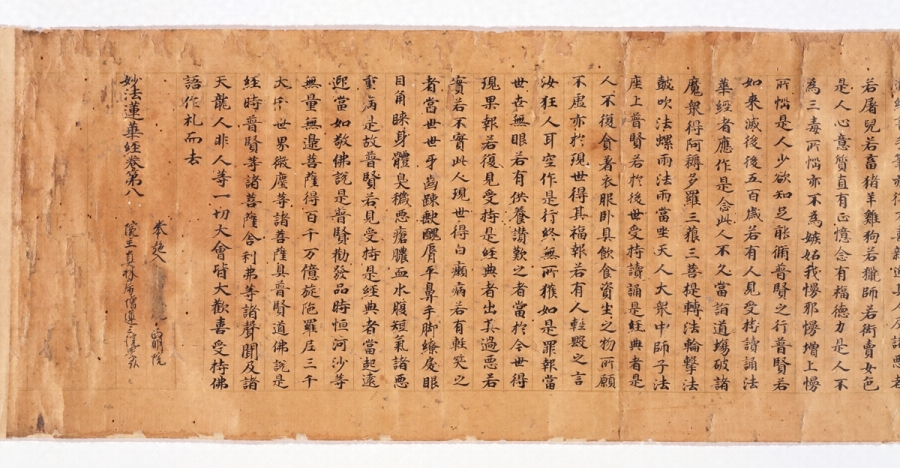 若屠兒若畜猪羊雞狗若獵師若衒賣女色
是人心意質直有正憶念有福德力是人不
為三毒所惱亦不為嫉妬我慢邪慢增上慢
所惱是人少欲知足能脩普賢之行普賢若
如來滅後後五百歲若有人見受持讀誦法
華經者應作是念此人不久當詣道場破諸
魔衆得阿耨多羅三藐三菩提轉法輪擊法
鼓吹法螺雨法雨當坐天人大衆中師子法
座上普賢若於後世受持讀誦是經典者是
人不復貪著衣服卧具飲食資生之物所願
不虛亦於現世得其福報若有人輕毀之言
汝狂人耳空作是行終無所獲如是罪報當
世世無眼若有供養讚歎之者當於今世得
現果報若復見受持是經典者出其過惡若
實若不實此人現世得白癩病若有輕笑之
者當世世牙齒踈缺醜脣平鼻手脚繚戾眼
目角睞身體臭穢惡瘡膿血水腹短氣諸惡
重病是故普賢若見受持是經典者當起遠
迎當如敬佛說是普賢勸發品時恒河沙等
無量無邊菩薩得百千万億旋陁羅尼三千
大千世界微塵等諸菩薩具普賢道佛說是
經時普賢等諸菩薩舍利弗等諸聲聞及諸
天龍人非人等一切大會皆大歡喜受持佛
語作礼而去
妙法蓮華經卷第八